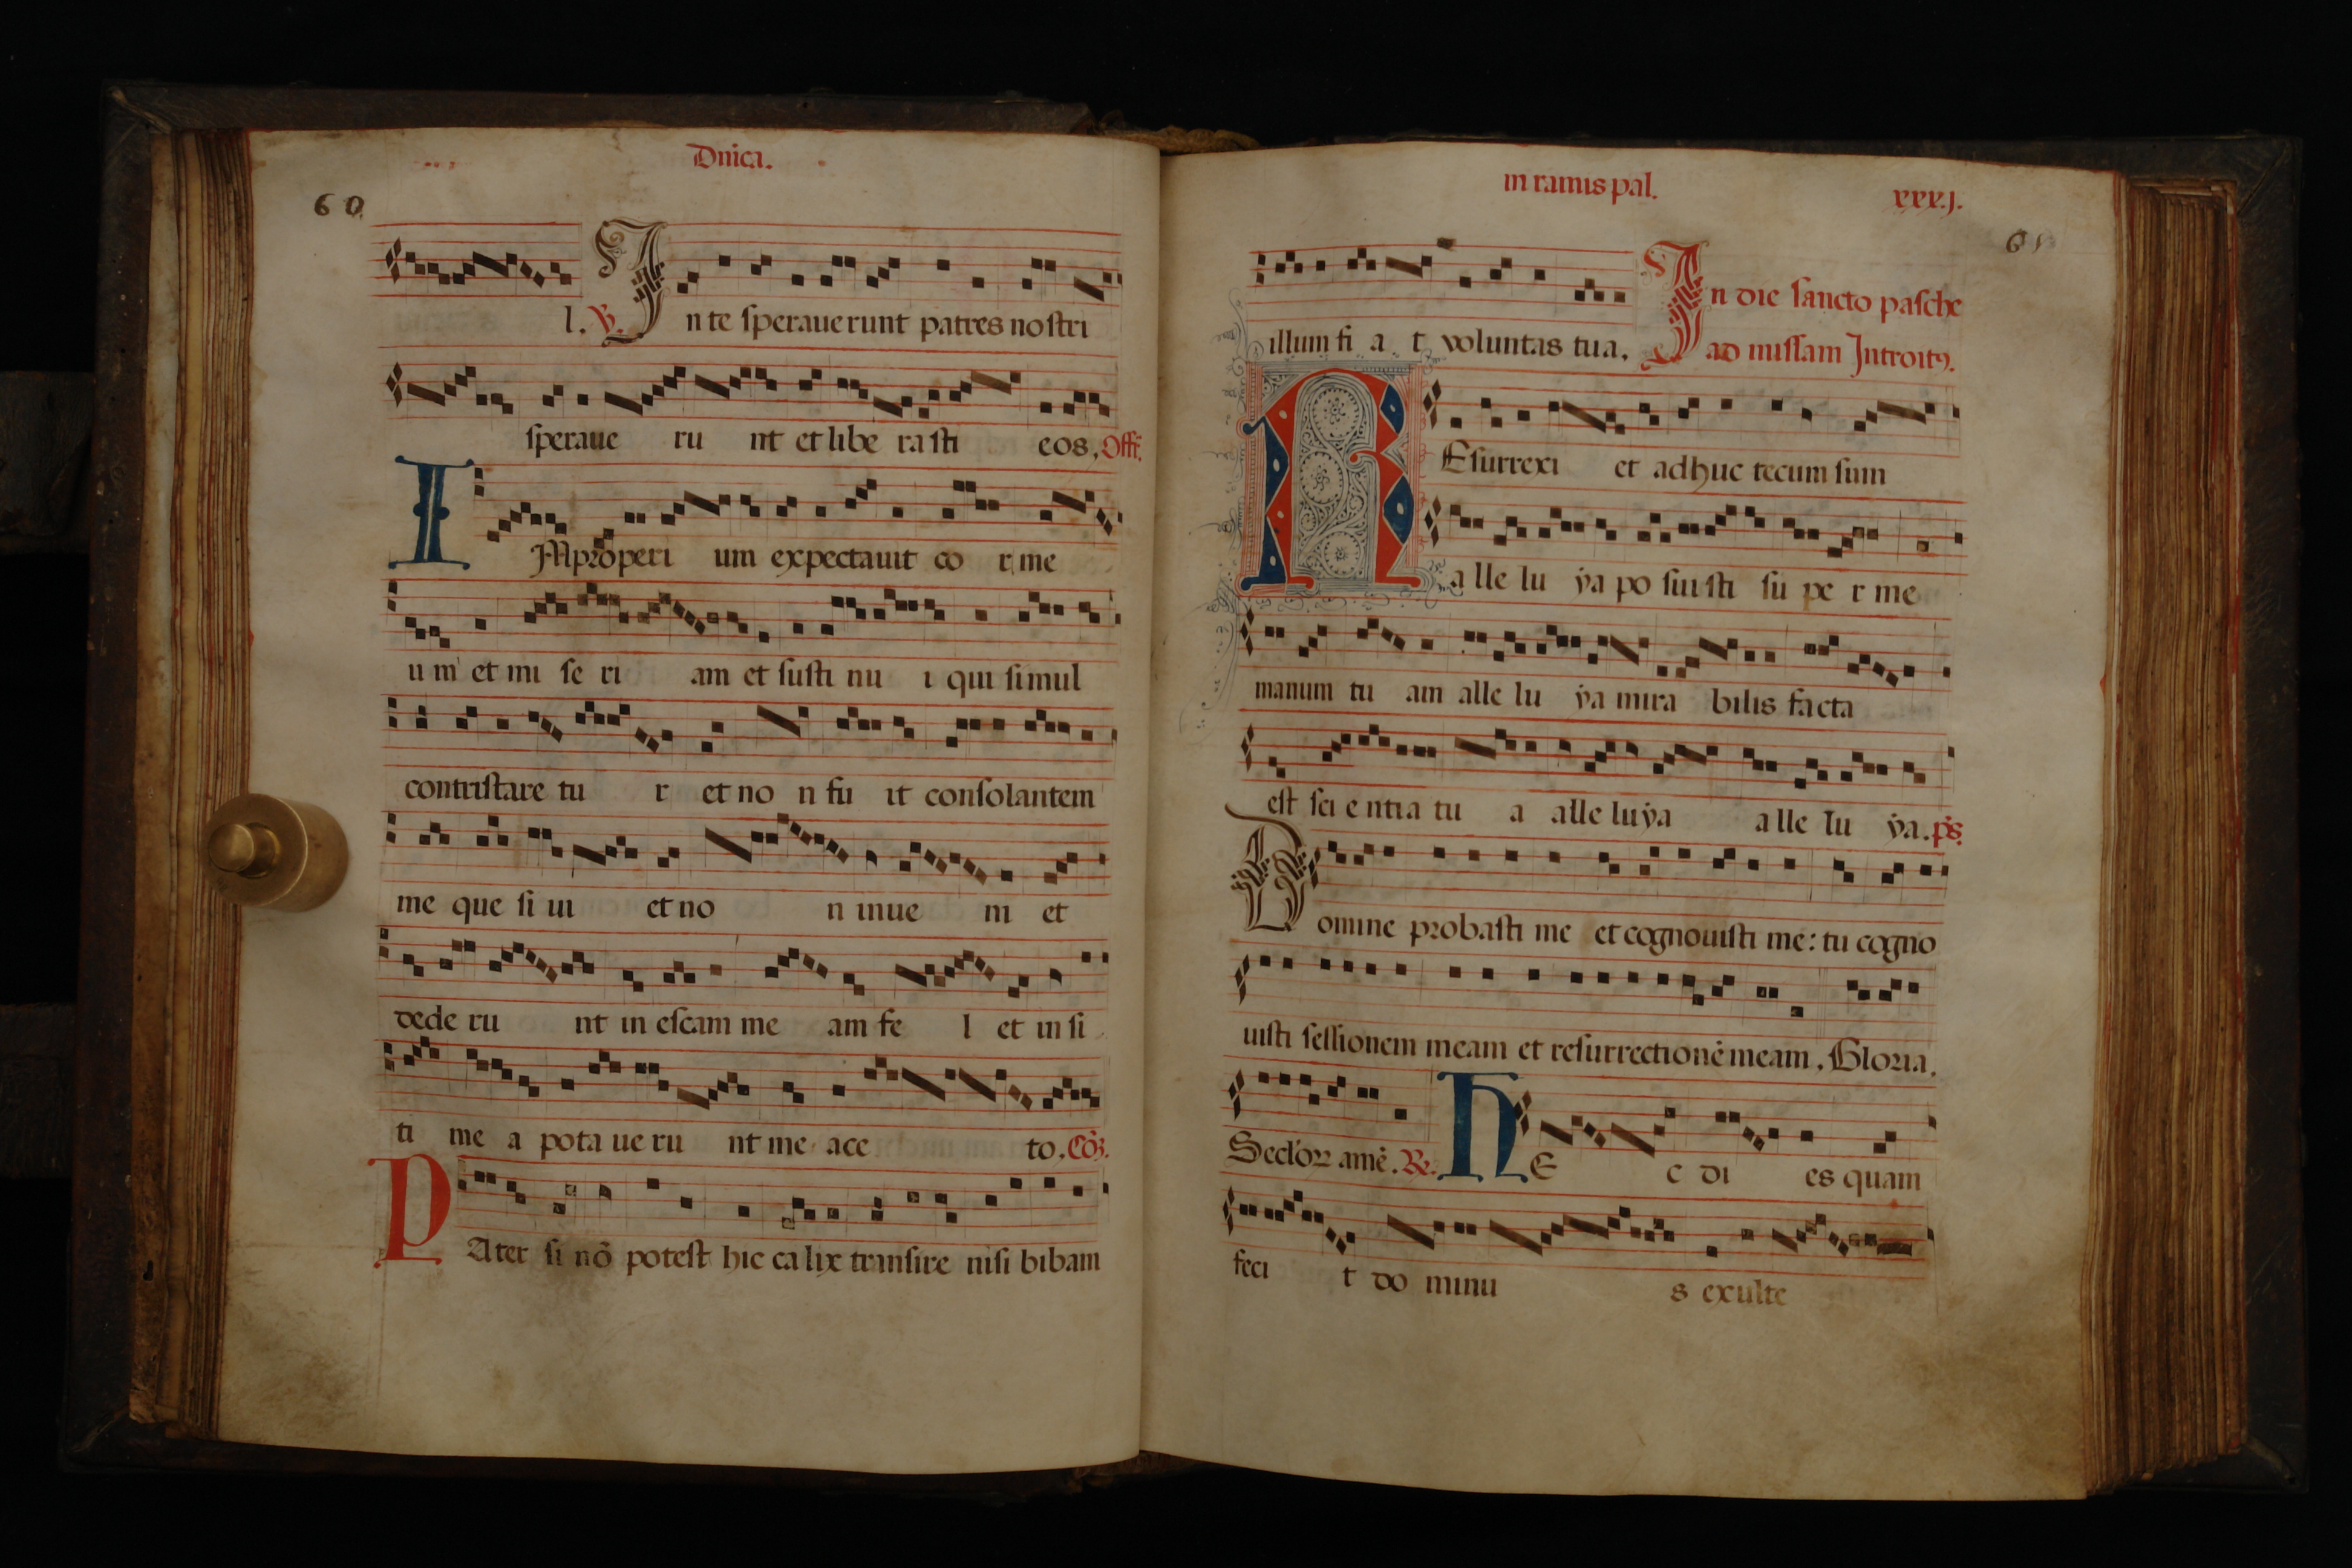 Dnica.
60
l. ℣. In te sperauerunt patres nostri
speraue ru nt et libe rasti eos, Off̃.
IMproperi um expectauit co r me
u m et mi se ri am et susti nu i qui simul
contristare tu r et no n fu it consolantem
me que si ui et no n inue ni et
dede ru nt in escam me am fe l et in si
ti me a pota ue ru nt me ace to. Cõ.
PAter si nõ potest hic ca lix transire nisi bibam
in ramis pal. xxxj.
61
illum fi a t voluntas tua. In die sancto pasche
ad missam Introitꝰ.
REsurrexi et adhuc tecum sum
a lle lu ẏa po sui sti su pe r me
manum tu am alle lu ẏa mira bilis facta
est sci e ntia tu a alle lu ẏa a lle lu ẏa. p̃s.
Domine probasti me et cognouisti me: tu cogno
uisti sessionem meam et resurrectionẽ meam. Gloria.
Seclõꝝ amẽ. ℟. HE c di es quam
feci t do minu s exulte